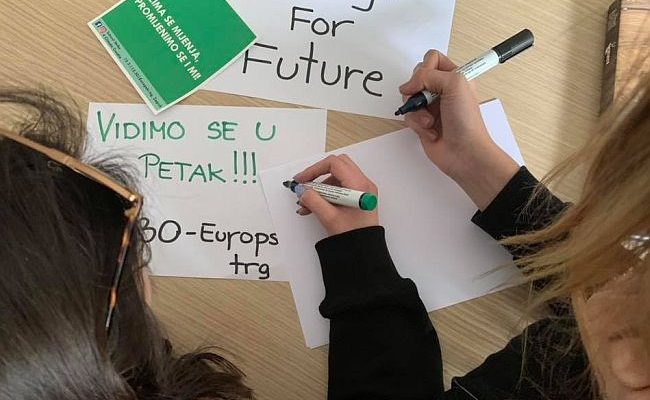 SE MIJENJA,
PROMIJENIMO SE I MI!
For
Future
VIDIMO SE U
PETAK!!!
30-Europs
trg